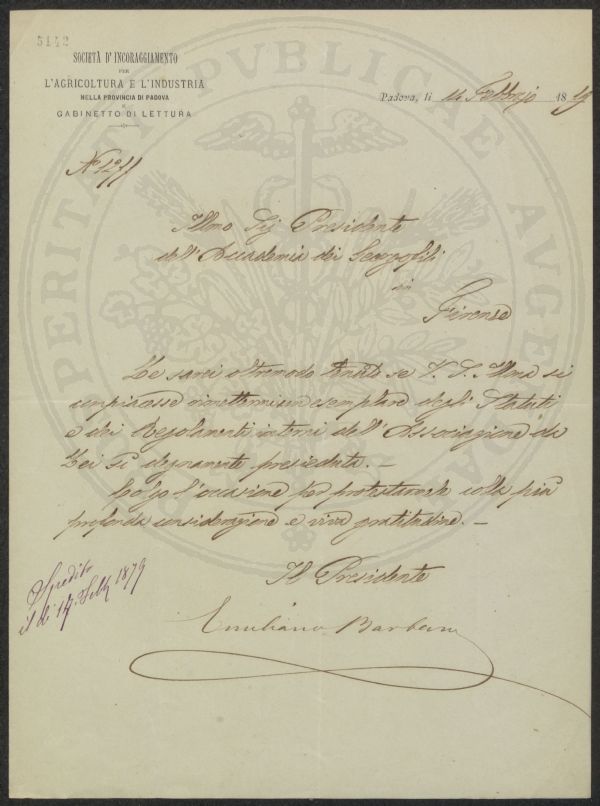 5142
SOCIETÀ D'INCORAGGIAMENTO
PER
L'AGRICOLTURA E L'INDUSTRIA
NELLA PROVINCIA DI PADOVA
E
GABINETTO DI LETTURA
Padova, li 14 Febbrajo 1879
PROSPERITATI PVBLICAE AVGENDAE
Illmo Sig Presidente
dell'Accademia dei Georgofili
in
Firenze
Le sarei oltremodo tenuto se V. S. Illma si
compiacesse rimettermi un esemplare degli Statuti
e dei Regolamenti interni dell'Associazione da
Lei sì degnamente presieduta. —
Colgo l'occasione per protestarmele colla più
profonda considerazione e viva gratitudine. —
Il Presidente
Emiliano Barbaro
Spedito
il dì 17. Febb 1879